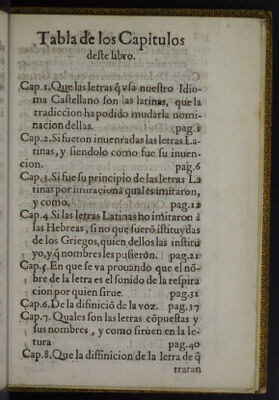 Tabla de los Capitulos
deste libro.
Cap. 1. Que las letras q̃ vsa nuestro Idio-
ma Castellano son las latinas, que la
tradiccion ha podido mudarla nomi-
nacion dellas. pag. 1
Cap. 2. Si fueron inuentadas las letras La-
tinas, y siendolo como fue su inuen-
cion. pag. 6
Cap. 3. Si fue su principio de las letras La
tinas por imitacion a quales imitaron,
y como. pag. 12
Cap. 4. Si las letras Latinas no imitaron à
las Hebreas, si no que fuerō istituydas
de los Griegos, quien dellos las institu
yo, y q̃ nombres les pusierōn. pag. 21
Cap. 5. En que se va prouando que el nõ-
bre de la letra es el sonido de la respira
cion por quien sirue. pag. 31
Cap. 6. De la difinicio de la voz. pag. 37
Cap. 7. Quales son las letras cõpuestas y
sus nombres, y como siruen en la le-
tura pag. 40
Cap. 8. Que la diffinicion de la letra de q̃
tratan